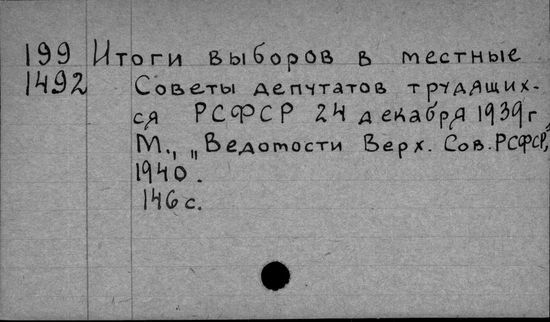 199 Итоги выборов в местные
1492 Советы депутатов трудящих-
ся РСФСР 24 декабря 1939 г.
М., „Ведомости Верх. Сов. РСФСР",
1940.
146 с.